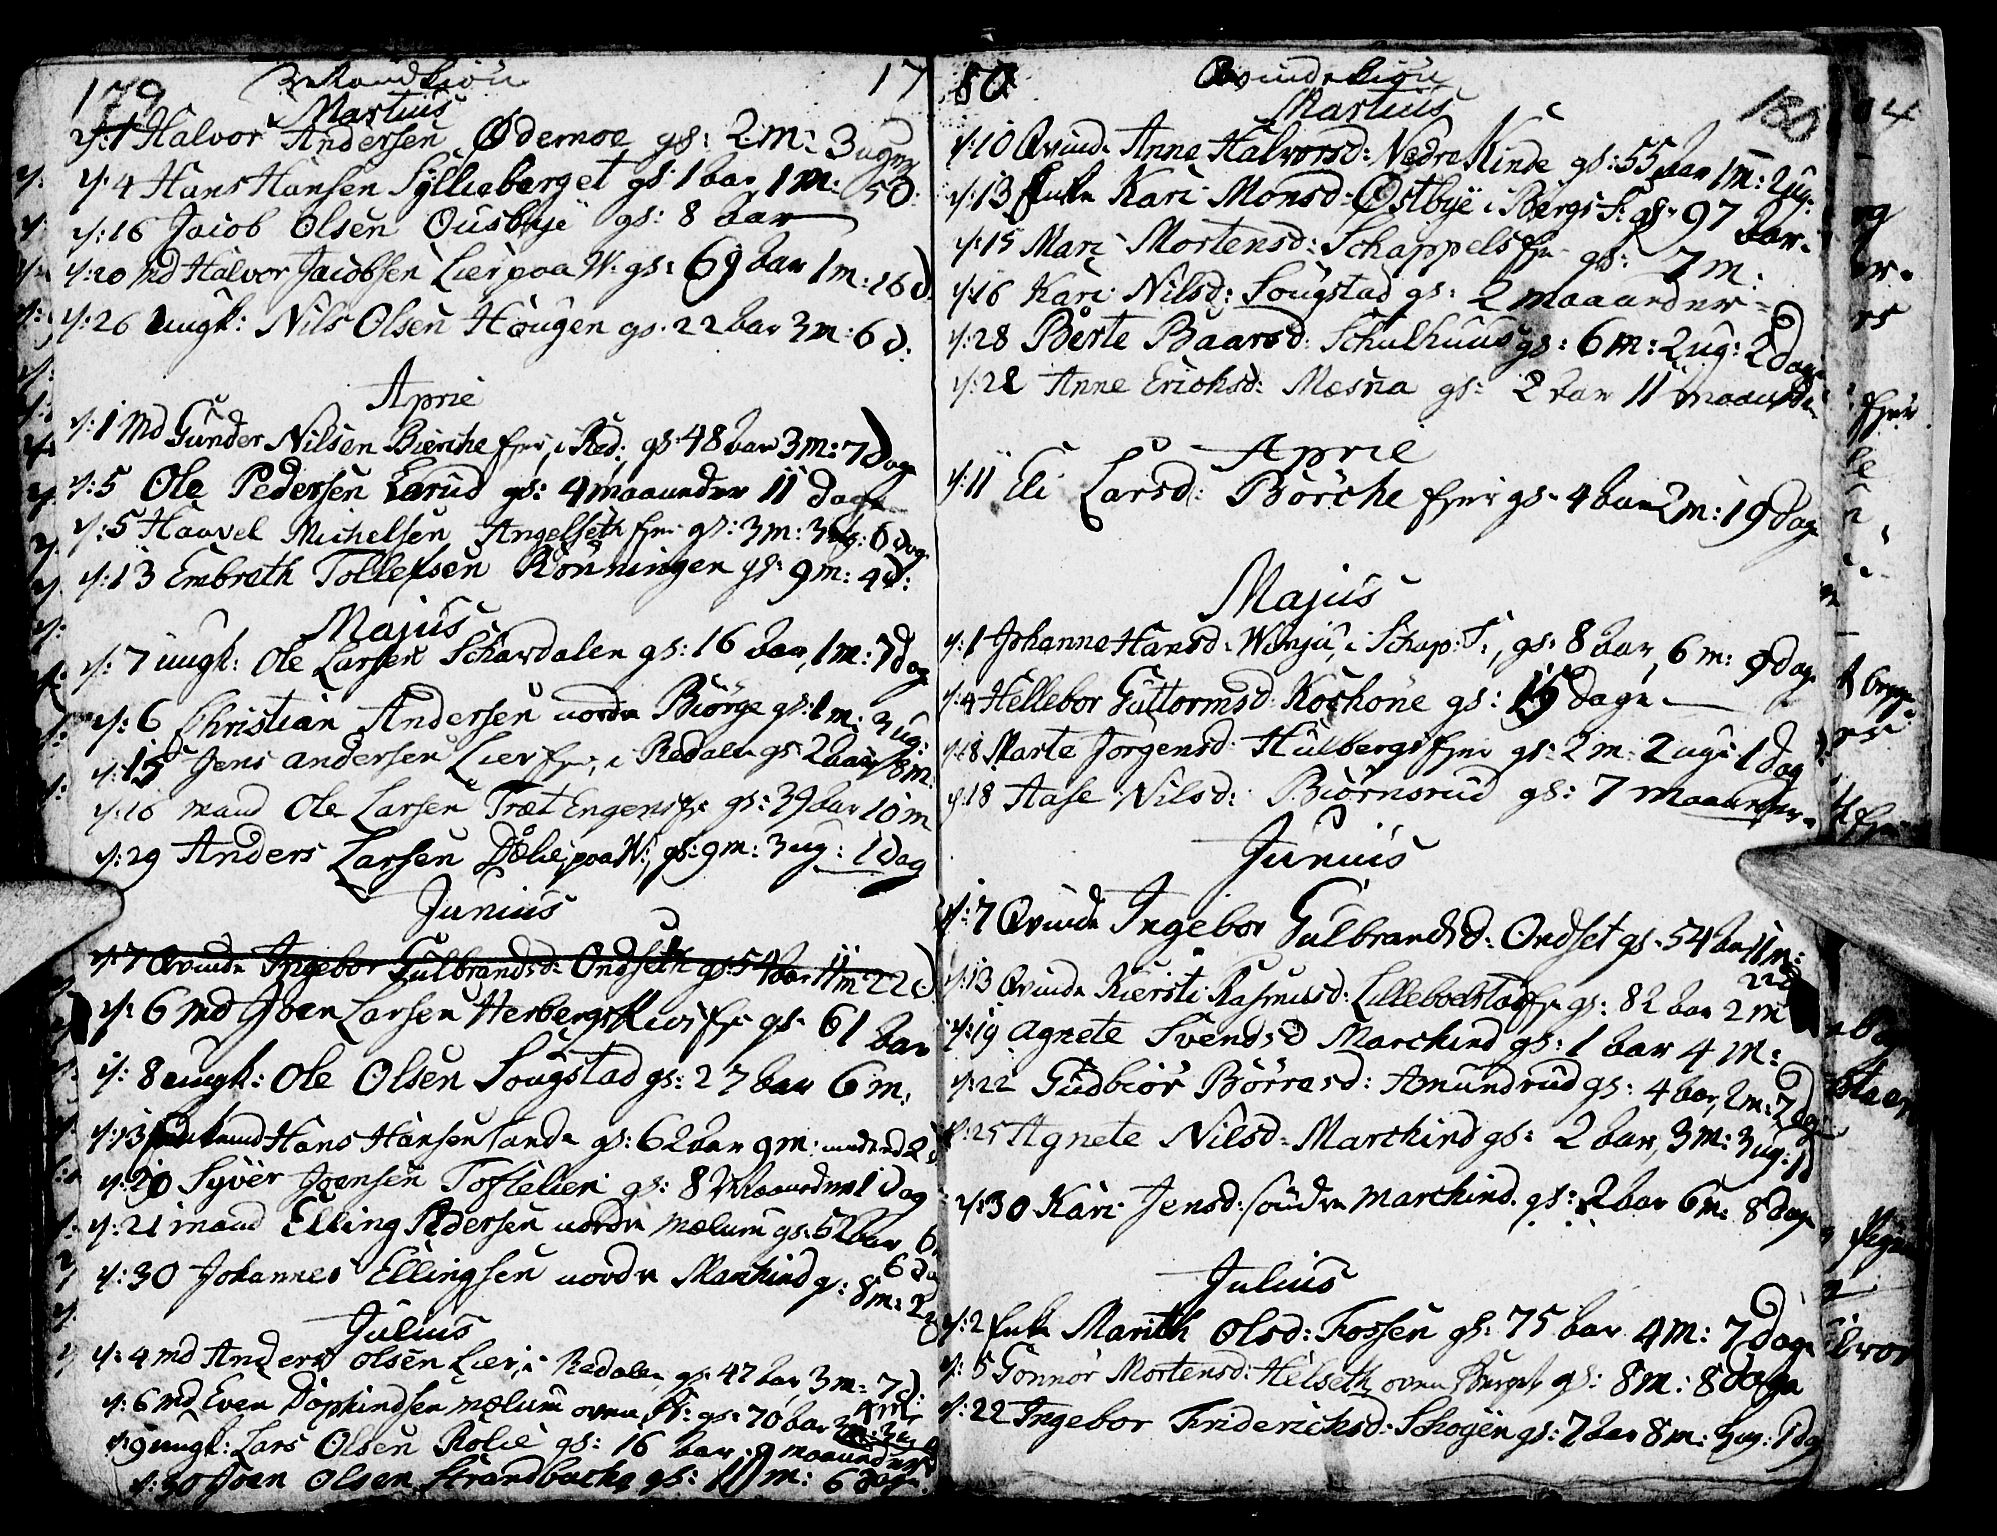 179 Mandkiøn 17
Martius
d: 1 Halvor Andersen Ødemoe gs: 2 m: 3 uger
d: 4 Hans Hansen Syllieberget gs: 1 aar 1 m: 5 d:
d: 16 Jacob Olsen Ousbye gs: 8 aar
d: 20 Md Halvor Jacobsen Lier paa W: gs: 69 aar 1 m: 16 d.
d: 26 ungk: Nils Olsen Haugen gs: 22 aar 3 m: 6 d:
April
d: 1 Md Gunder Nilsen Bierche Eje, i Red: gs: 48 aar 3 m: 7 dage
d: 5 Ole Pedersen Larud gs: 4 maaneder 11 dage
d: 5 Haavel Michelsen Angelseth Eje gs: 3 m: 3 ug: 6 dag
d: 13 Embreth Tollefsen Rønningen gs: 9 m: 4 d:
Majus
d: 7 ungk: Ole Larsen Schardalen gs: 16 aar, 1 m: 7 dag
d: 6 Christian Andersen nordre Biørge gs: 1 m: 3 ug:
d: 15 Jens Andersen Lier Eje, i Redalen gs: 2 aar 8 m:
d: 16 mand Ole Larsen Træt Engens Eje gs: 39 aar 10 m
d: 29 Anders Larsen Dælie, paa W:, gs: 9 m: 3 ug: 1 dag
Junius
d: 7 Qvinde Ingebor Gulbrandsd: Ondseth gs: 54 aar 11 m 22 d
d: 6 Md Joen Larsen Herberg Eje gs: 61 aar
d: 8 ungk: Ole Olsen Sougstad gs: 27 aar 6 m:
d: 13 Enkemd Hans Hansen Sande gs: 62 aar 9 m:
d: 20 Syver Joensen Toftelien gs: 8 Maaneder 1 dag
d: 21 mand Elling Pedersen nordre Mælum gs: 52 aar 6 m
6 da
d: 30 Johannes Ellingsen nordre Marchind gs: 8 m: 2
Julius
d: 4 md Anders Olsen Lier, i Redalen gs: 47 aar, 3 m: 7 d:
d: 6 md Even Mælum gs: 70 aar
d: 9 ungk: Lars Olsen Rolie gs: 16 aar 9 maaneder
d: 30 Joen Olsen Strandbache gs: 11 m: 6 dage
80 Qvindekiøn 180
Martius
d: 10 Qvinde Anne Halvorsd: Nedre Kinde gs: 55 aar 1 m: 2 ug:
d: 13 Enke Kari Monsd: Østbye i Bergs S: gs: 97 aar:
d: 15 Mari Mortensd: Schappels Eje gs: 7 m:
d: 16 Kari Nilsd: Sougstad gs: 2 maaneder
d: 28 Berte Baarsd: Schulhuus gs: 6 m: 2 ug: 2 dage
d: 28 Anne Erichsd: Mæsna gs: 2 aar 11 maaneder
April
d: 11 Eli Larsd: Børche Eje gs: 4 aar 2 m: 19 dage
Majus
d: 1 Johanne Hansd: i Schap: S:, gs: 8 aar, 6 m: 9 dag
d: 4 Hellebor Guttormsd: gs: 15 dage
d: 18 Marte Jørgensd: Hulbergs Eje gs: 2 m: 2 ug: 1 dag
d: 18 Aase Nilsd: Biørnsrud gs: 7 maaneder
Junius
d: 7 Qvinde Ingebor Gulbrandsd: Ondset gs: 54 aar 11 m:
22 d
d: 13 Qvinde Kiersti Rasmusd: Lilleboelstad Eje gs: 82 aar 2 m
d: 19 Agnete Svendsd Marchind gs: 1 aar 4 m:
d: 22 Gudbiør Børresd: Amundrud gs: 4 aar, 2 m: 7 dag
d: 25 Agnete Nilsd: Marchind gs: 2 aar, 3 m: 3 ug: 1 d
d: 30 Kari Jensd: søndre Marchind gs: 2 aar 6 m: 8 dage
Julius
d: 2 Enke Marith Olsd: Fossen gs: 75 aar 4 m: 7 dage
d: 5 Gonnor Mortensd: Helseth gs: 8 m: 8 dage
d: 22 Ingebor Friderichsd: Schoyen gs: 7 aar 8 m: 3 ug: 1 dag